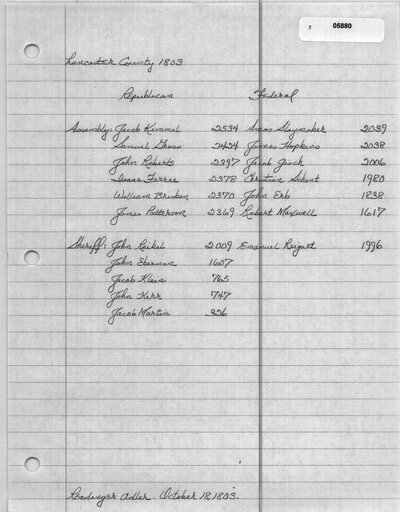 05880
Lancaster County 1803
Republican Federal
Assembly: Jacob Kimmel 2534 Amos Slaymaker 2039
Samuel Gross 2424 James Hopkins 2038
John Roberts 2397 Jacob Gisck 2006
Isaac Ferree 2378 Christian Schent 1980
William Bruben 2370 John Erb 1838
James Patterson 2369 Robert Maxwell 1617
Sheriff: John Reikel 2009 Emanuel Reigart 1996
John Eberman 1607
Jacob Klein 765
John Kerr 747
Jacob Martin 326
Readinger Adler. October 18, 1803.